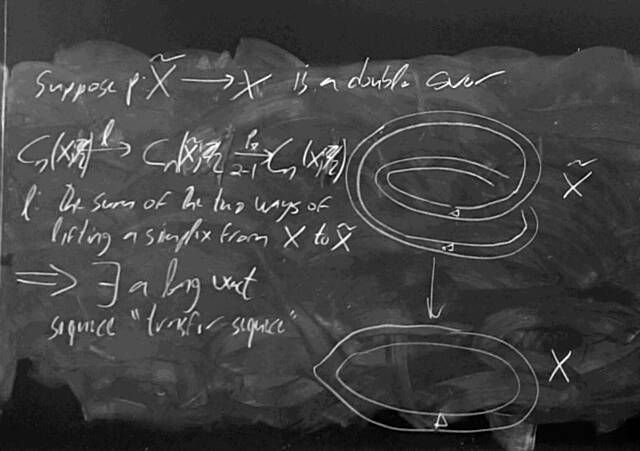 Suppose p: X̃ → X is a double cover
Cₙ(X;ℤ₂) →ˡ Cₙ(X̃;ℤ₂) →ᵖ* ₂₋₁ Cₙ(X;ℤ₂)
l: the sum of the two ways of
lifting a simplex from X to X̃
⟹ ∃ a long exact
sequence "transfer sequence"
X̃
X